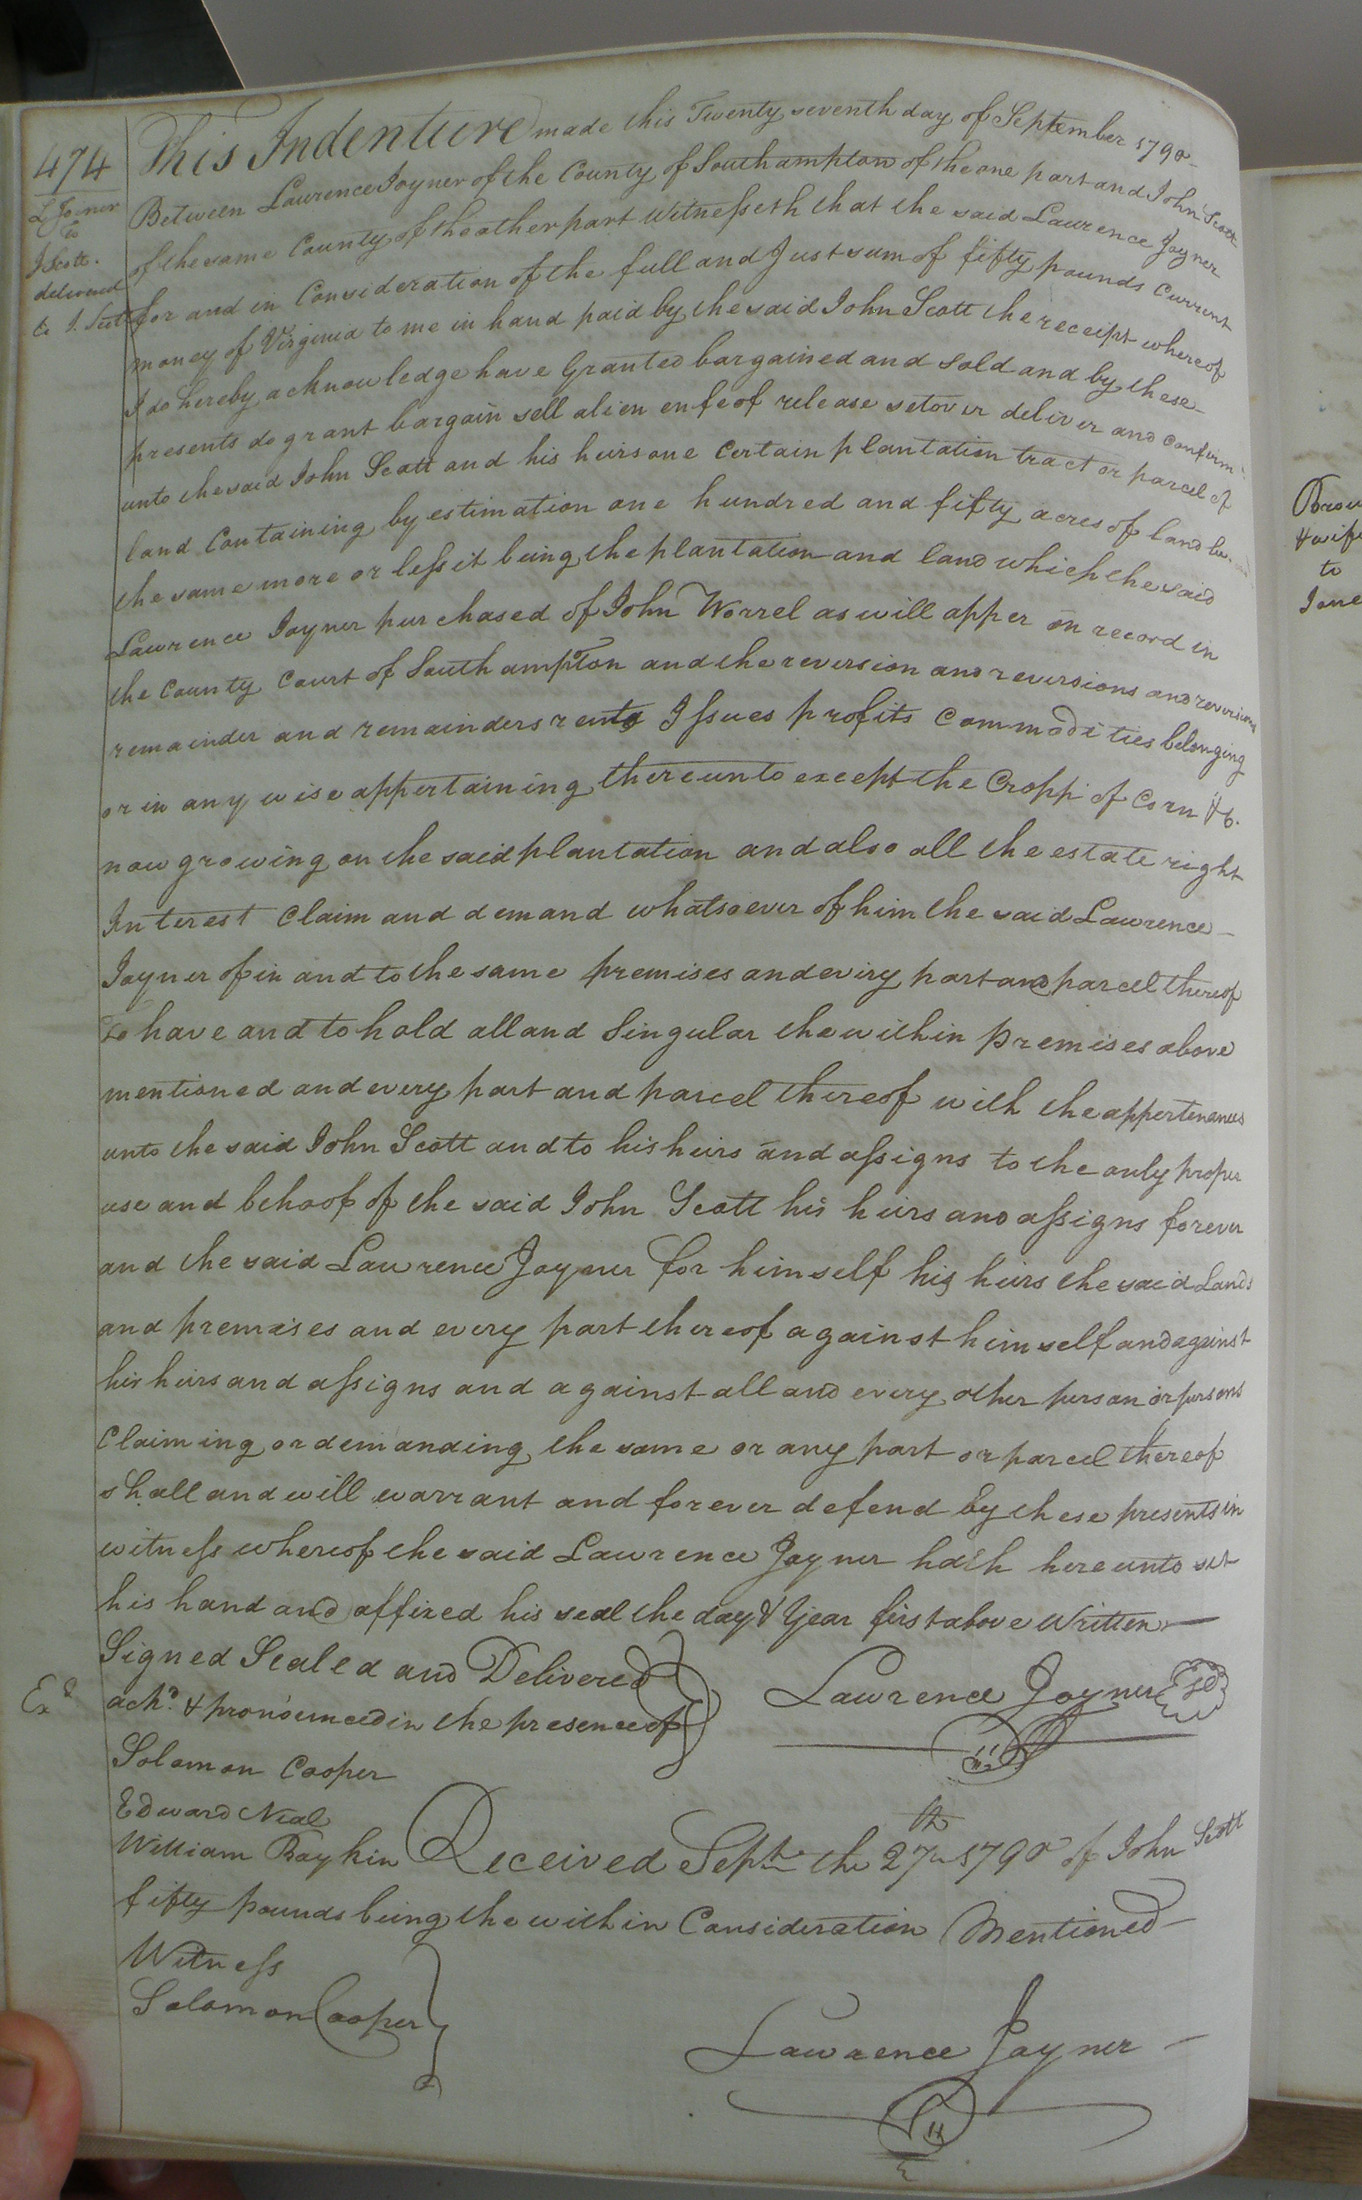 474
L Joiner
to
J Scott.
delivered
to J. Scott
This Indenture made this Twenty seventh day of September 1790
Between Lawrence Joyner of the County of Southampton of the one part and John Scott
of the same County of the other part Witnesseth that the said Lawrence Joyner
for and in Consideration of the full and Just sum of fifty pounds Current
money of Virginia to me in hand paid by the said John Scott the receipt whereof
I do hereby acknowledge have Granted bargained and sold and by these
presents do grant bargain sell alien enfeof release setover deliver and confirm
unto the said John Scott and his heirs one Certain plantation tract or parcel of
land Containing by estimation one hundred and fifty acres of land be
the same more or less it being the plantation and land which the said
Lawrence Joyner purchased of John Worrel as will apper on record in
the County Court of Southampton and the reversion and reversions and reversions
remainder and remainders rents Issues profits Commodities belonging
or in any wise appertaining thereunto except the Cropp of Corn &c.
now growing on the said plantation and also all the estate right
Interest Claim and demand whatsoever of him the said Lawrence
Joyner of in and to the same premises and every part and parcel thereof
To have and to hold all and Singular the within premises above
mentioned and every part and parcel thereof with the appertenances
unto the said John Scott and to his heirs and assigns to the only proper
use and behoof of the said John Scott his heirs and assigns forever
and the said Lawrence Joyner for himself his heirs the said Lands
and premises and every part thereof against himself and against
his heirs and assigns and against all and every other person or persons
Claiming or demanding the same or any part or parcel thereof
shall and will warrant and forever defend by these presents in
witness whereof the said Lawrence Joyner hath hereunto set
his hand and affixed his seal the day & Year first above Written
Signed Sealed and Delivered
ackd. & pronounced in the presence of
Lawrence Joyner Sd
Exd
Solomon Cooper
Edward Neal
William Boykin
Received Sept. the 27th 1790 of John Scott
fifty pounds being the within Consideration Mentioned
Witness
Solomon Cooper
Lawrence Joyner
Brow
& wife
to
Jone